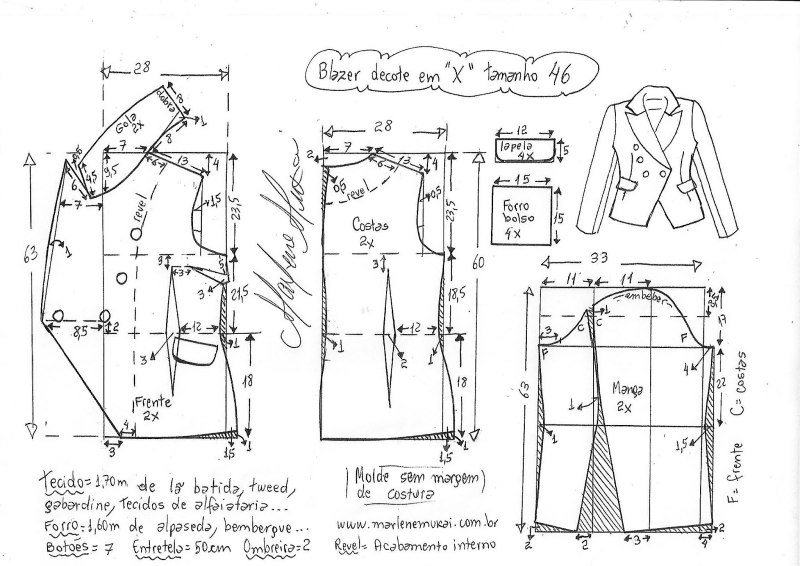 Blazer decote em "X" tamanho 46
28
Gola
2x
dobra
8
1
7
8
6
13
4
9,5
9,5
4,5
6
7
revel
1,5
23,5
63
1
3
3
3
21,5
8,5
2
12
3
1
18
Frente
2x
4
3
1,5
1
28
2
7
6
13
4
0,5
revel
0,5
Costas
2x
23,5
60
3
18,5
12
2
1
18
1,5
1
12
lapela
4x
5
15
Forro
bolso
4x
15
33
11
11
embeber
1
C
C
3
F
F
4
63
22
Manga
2x
1
1
1,5
2
2
3
4
2
F= frente C= costas
Tecido= 1,70m de lã batida, tweed,
gabardine, Tecidos de alfaiataria...
Forro= 1,60m de alpaseda, bembergue...
Botões= 7 Entretela= 50cm Ombreira= 2
Molde sem margem
de costura
www.marlenemukai.com.br
Revel= Acabamento interno